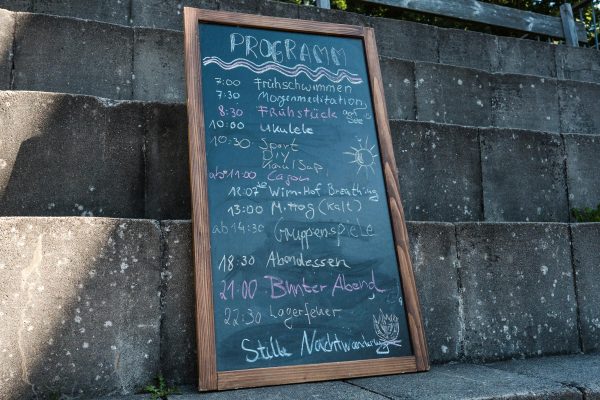 PROGRAMM
7:00 Frühschwimmen
7:30 Morgenmeditation
8:30 Frühstück auf See
10:00 Ukulele
10:30 Sport
DIY
ab 11:00 Cajon
Wim-Hof Breathing
13:00 Mittag (kalt)
ab 14:30 Gruppenspiele
18:30 Abendessen
21:00 Bunter Abend
22:30 Lagerfeuer
Stille Nachtwanderung